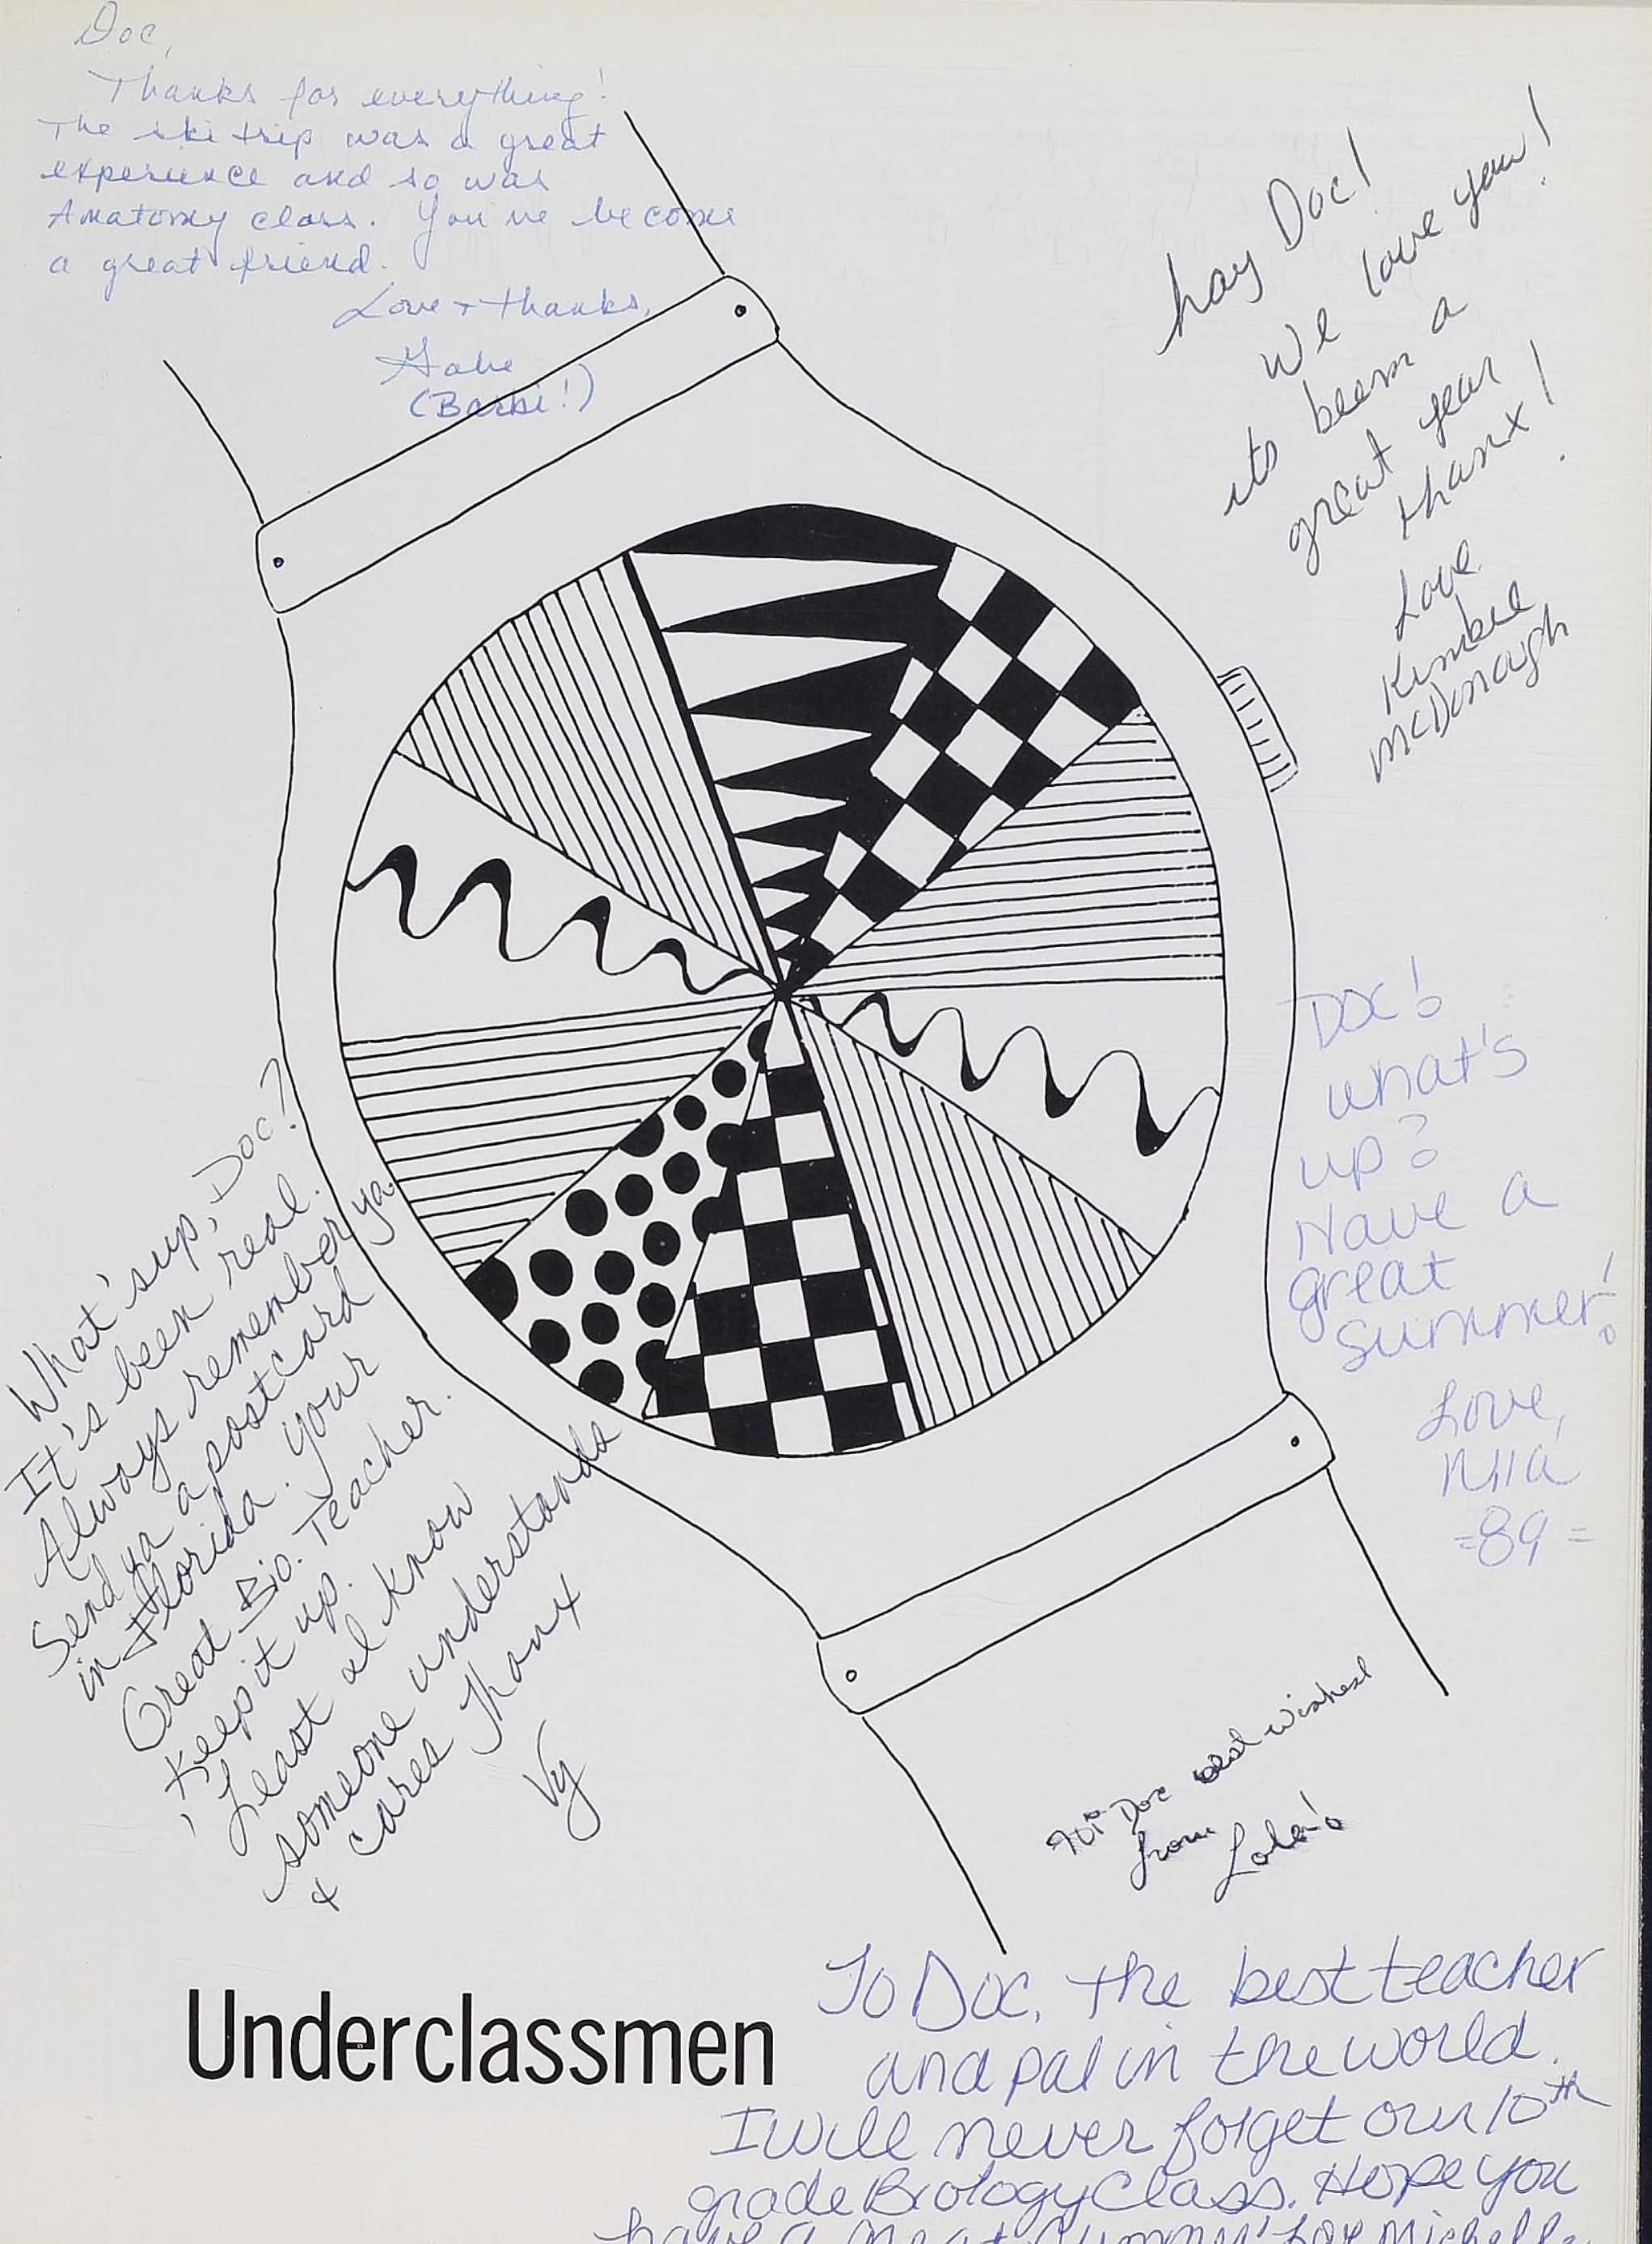 Doc,
Thanks for everything!
The ski trip was a great
experience and so was
Anatomy class. You've become
a great friend.
Love + thanks,
Gabe
(Barbi!)
hay Doc!
We love you!
its been a
great year
thanx!
Love
Kimbee
McDonough
Doc!
what's
up?
Have a
great
summer!
Love,
-89-
What's up, Doc?
It's been real.
Always remember ya
Send ya a postcard
in Florida. Your
Great Bio. Teacher.
Keep it up.
Least I know
someone understands
+ cares Thanx
Vy
Doc best wishes
from
Lola!
Underclassmen
To Doc, the best teacher
and pal in the world.
I will never forget our 10th
grade Biology Class. Hope you
have a great summer! Love Michelle